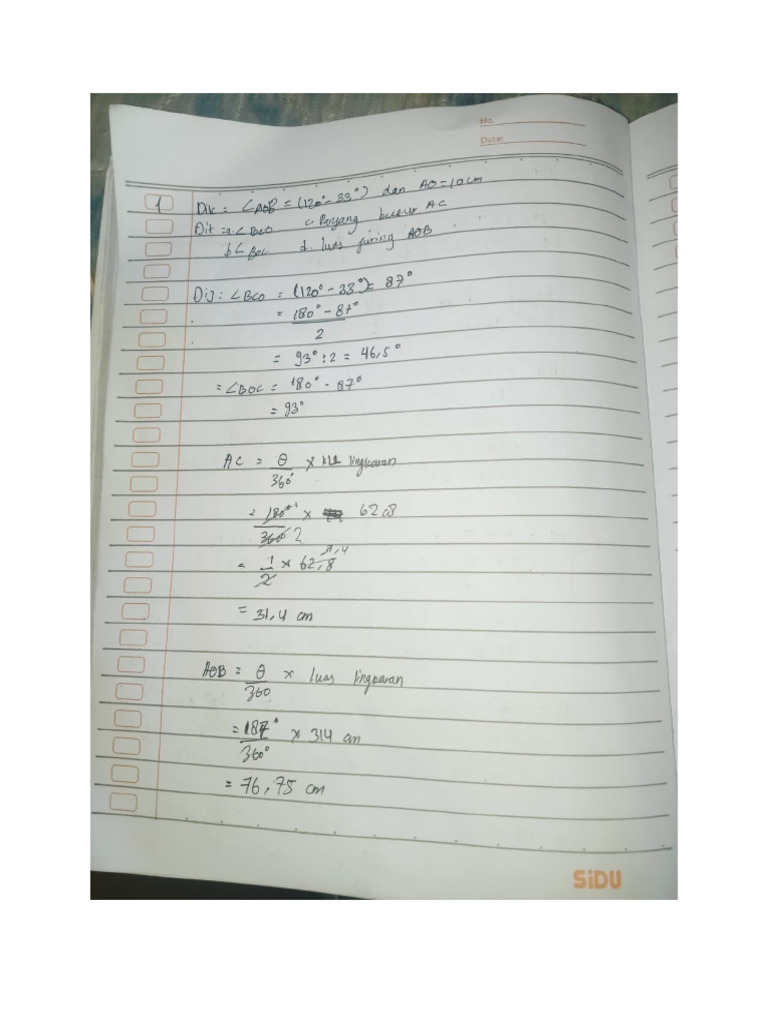 No.
Date:
1 Dik = ∠AOB = (120° - 33°) dan AO = 10 cm
Dit = a. ∠BCO c. Panjang busur AC
b ∠BOC d. luas juring AOB
Dij : ∠BCO = (120° - 33°) = 87°
= 180° - 87°
2
= 93° : 2 = 46,5°
= ∠BOC = 180° - 87°
= 93°
AC = θ × kll lingkaran
360°
= 180° 1 × 62,8
360 2
= 1 × 62,8 31,4
2
= 31,4 cm
AOB = θ × luas lingkaran
360
= 87° × 314 cm
360°
= 76,75 cm
SiDU